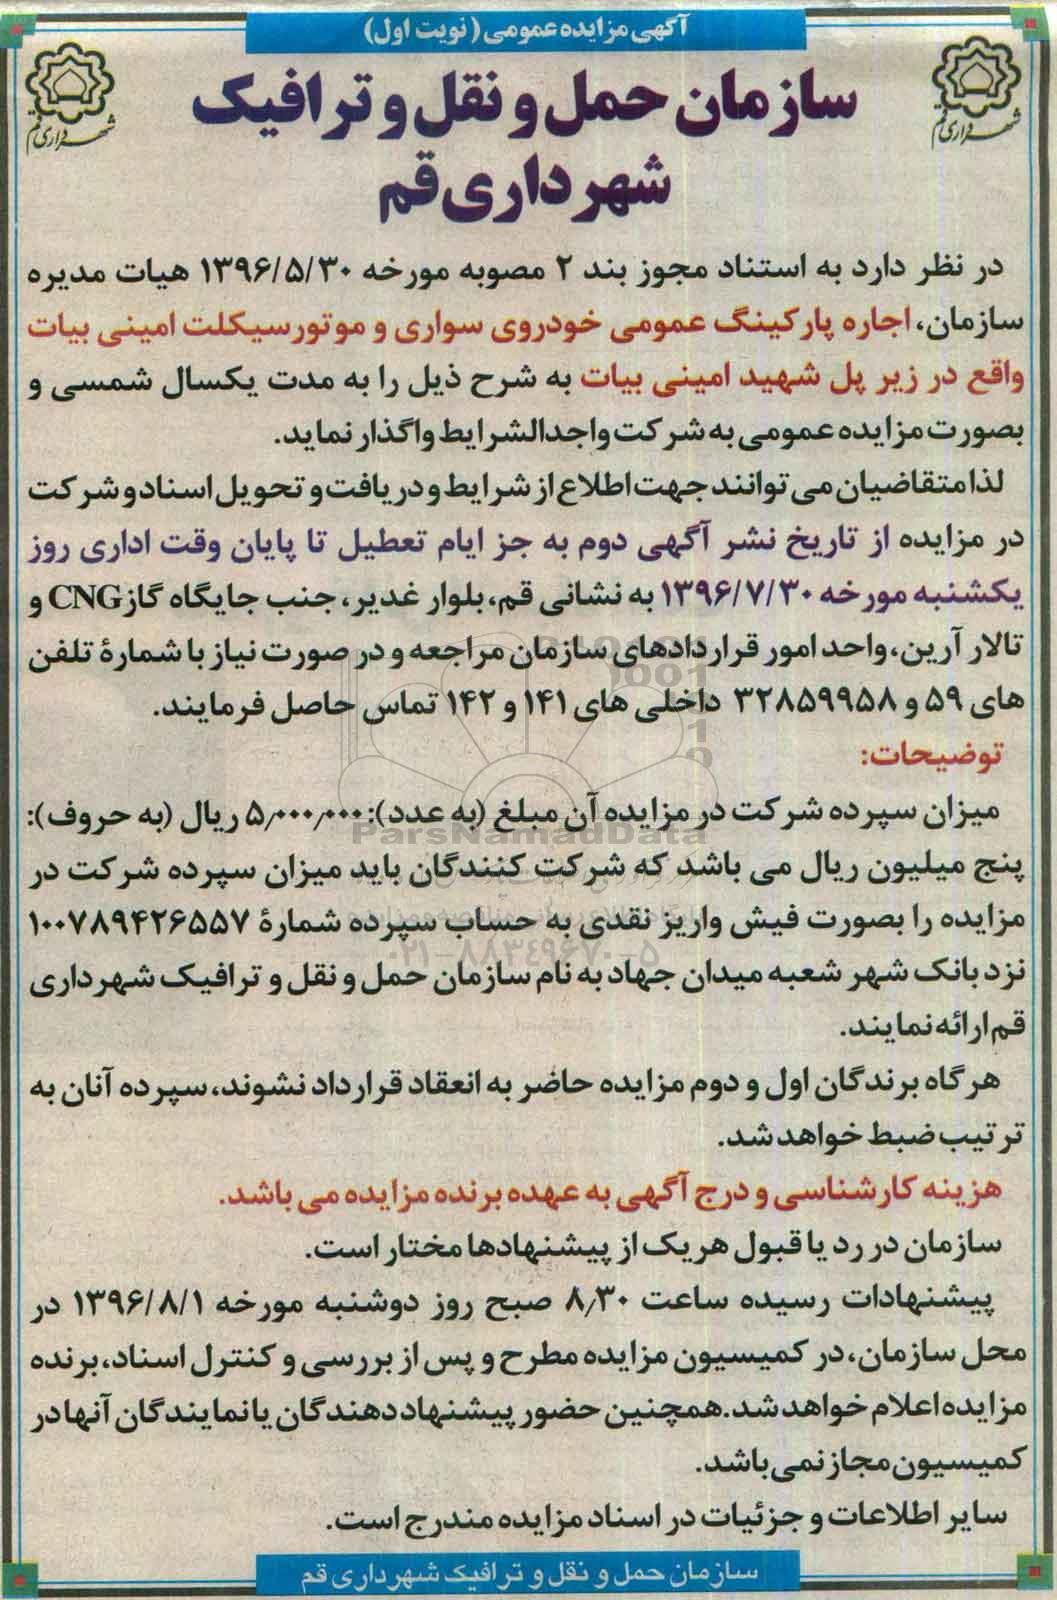 آگهی مزایده عمومی (نوبت اول)
سازمان حمل و نقل و ترافیک
شهرداری قم
شهرداری قم
شهرداری قم
در نظر دارد به استناد مجوز بند ۲ مصوبه مورخه ۱۳۹۶/۵/۳۰ هیات مدیره
سازمان، اجاره پارکینگ عمومی خودروی سواری و موتورسیکلت امینی بیات
واقع در زیر پل شهید امینی بیات به شرح ذیل را به مدت یکسال شمسی و
بصورت مزایده عمومی به شرکت واجدالشرایط واگذار نماید.
لذا متقاضیان می توانند جهت اطلاع از شرایط و دریافت و تحویل اسناد و شرکت
در مزایده از تاریخ نشر آگهی دوم به جز ایام تعطیل تا پایان وقت اداری روز
یکشنبه مورخه ۱۳۹۶/۷/۳۰ به نشانی قم، بلوار غدیر، جنب جایگاه گاز CNG و
تالار آرین، واحد امور قراردادهای سازمان مراجعه و در صورت نیاز با شمارهٔ تلفن
های ۵۹ و ۳۲۸۵۹۹۵۸ داخلی های ۱۴۱ و ۱۴۲ تماس حاصل فرمایند.
توضیحات:
میزان سپرده شرکت در مزایده آن مبلغ (به عدد): ۵٫۰۰۰٫۰۰۰ ریال (به حروف):
ParsNamadData
پنج میلیون ریال می باشد که شرکت کنندگان باید میزان سپرده شرکت در
مزایده را بصورت فیش واریز نقدی به حساب سپرده شمارهٔ ۱۰۰۷۸۹۴۲۶۵۵۷
۰۲۱-۸۸۳۴۹۶۷۰-۵
نزد بانک شهر شعبه میدان جهاد به نام سازمان حمل و نقل و ترافیک شهرداری
قم ارائه نمایند.
هرگاه برندگان اول و دوم مزایده حاضر به انعقاد قرارداد نشوند، سپرده آنان به
ترتیب ضبط خواهد شد.
هزینه کارشناسی و درج آگهی به عهده برنده مزایده می باشد.
سازمان در رد یا قبول هریک از پیشنهادها مختار است.
پیشنهادات رسیده ساعت ۸٫۳۰ صبح روز دوشنبه مورخه ۱۳۹۶/۸/۱ در
محل سازمان، در کمیسیون مزایده مطرح و پس از بررسی و کنترل اسناد، برنده
مزایده اعلام خواهد شد. همچنین حضور پیشنهاد دهندگان یا نمایندگان آنها در
کمیسیون مجاز نمی باشد.
سایر اطلاعات و جزئیات در اسناد مزایده مندرج است.
سازمان حمل و نقل و ترافیک شهرداری قم